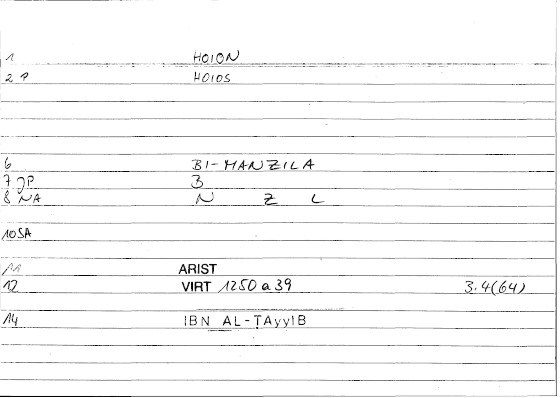 1 HOION
2 P HOIOS
6 BI-MANZILA
7 JP B
8 NA N Z L
10 SA
11 ARIST
12 VIRT 1250 a 39 3.4(64)
14 IBN AL-ṬAyyIB